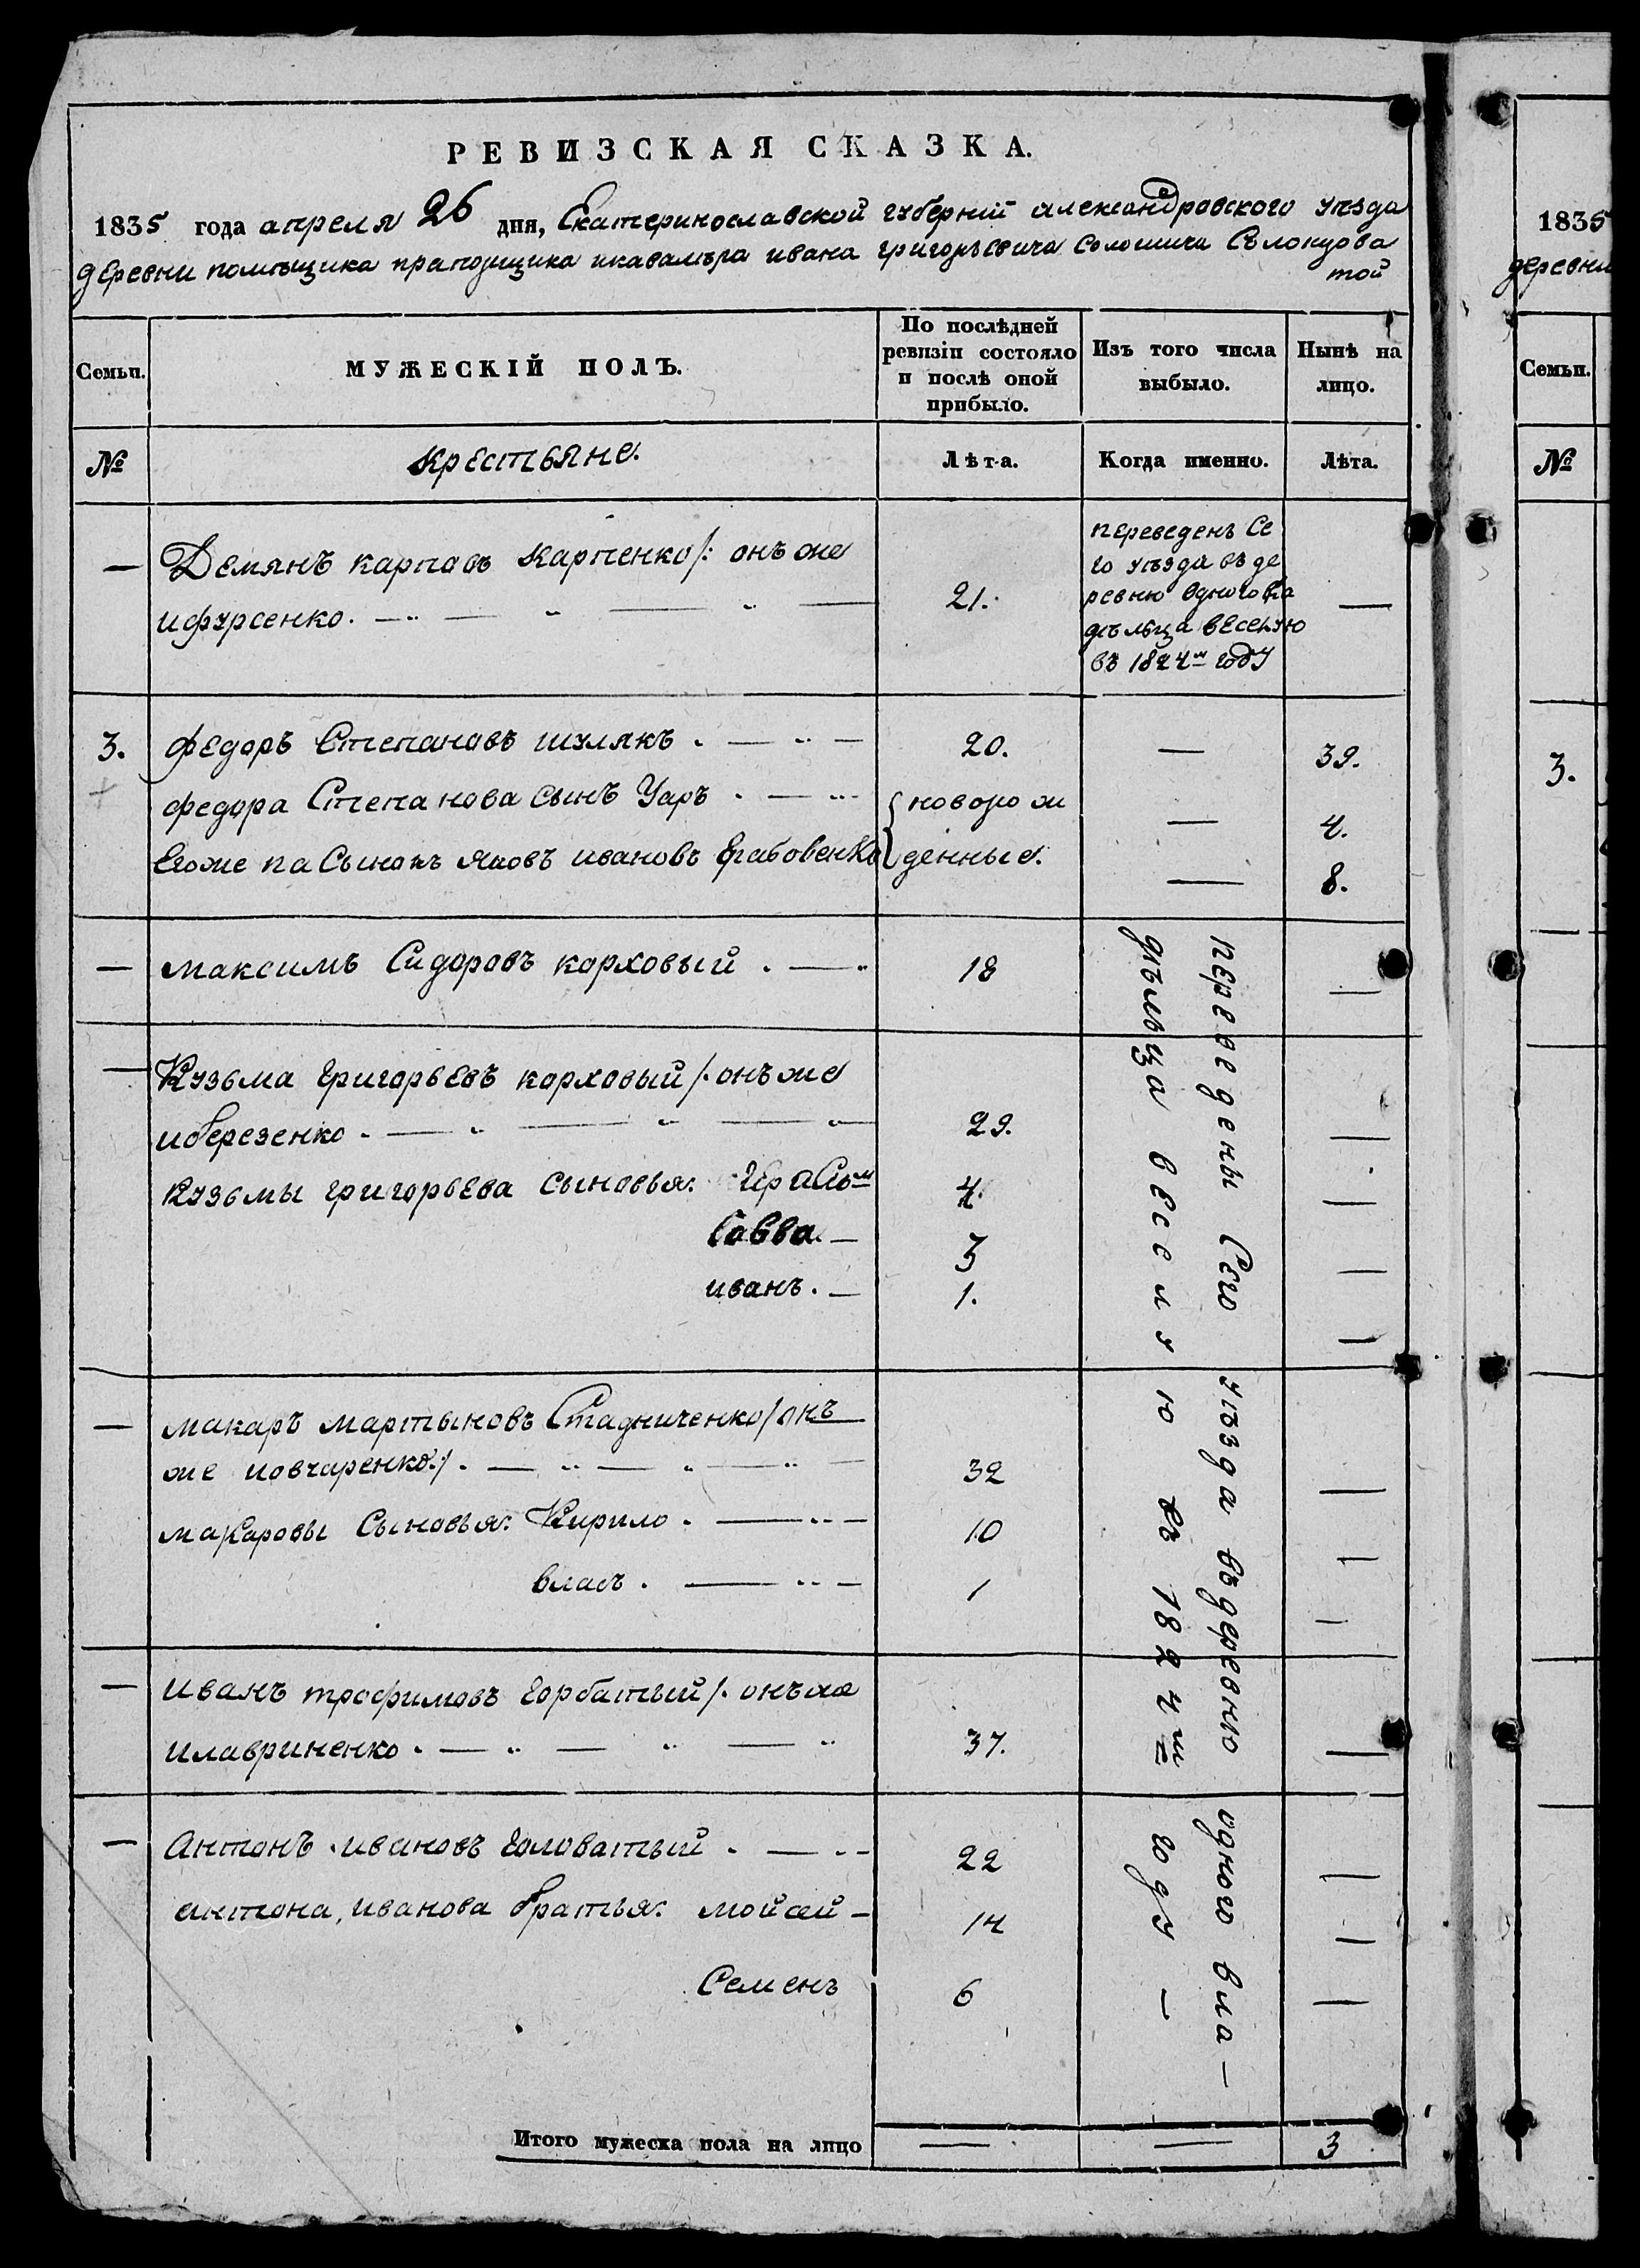 РЕВИЗСКАЯ СКАЗКА.
1835 года апреля 26 дня, Екатеринославской губерніи александровского уѣзда
деревни помѣщика прапорщика икавалѣра ивана григорьевича
той
Семьи.
МУЖЕСКІЙ ПОЛЪ.
По послѣдней
ревизіи состояло
и послѣ оной
прибыло.
Изъ того числа
выбыло.
Нынѣ на
лицо.
№
крестьяне.
Лѣта.
Когда именно.
Лѣта.
— Демянъ карповъ карпенко/: онъ же
ифурсенко.
21.
переведенъ Се
го уѣзда въ де
ревню одного вла
дѣльца веселую
въ 1824м году
—
3. федоръ Степановъ шулякъ . 20. — 39.
федора Степанова сынъ Уаръ . новорож — 4.
Егоже пасынокъ яковъ ивановъ грабовенко денные. — 8.
— максимъ Сидоровъ корховый . 18 —
— Кузьма григорьевъ корховый /. онъ же
иберезенко . 29. —
кузьмы григорьева сыновья: Герасим 4. —
Савва. — 3 —
иванъ. — 1. —
— макаръ мартыновъ Стадниченко/онъ
же иовчаренко:/. 32 —
макаровы Сыновья: Кирило . 10 —
власъ . 1 —
— иванъ трофимовъ горбатый /. онъ же
илавриненко . 37. —
— антонъ ивановъ головатый . 22 —
антона, иванова братья: мойсей — 14 —
Семенъ 6 —
переведены Сего уѣзда въ деревню одного вла—
дѣльца веселую въ 1824м году —
Итого мужеска пола на лицо — — 3
1835
деревни
Семьи.
№
3.